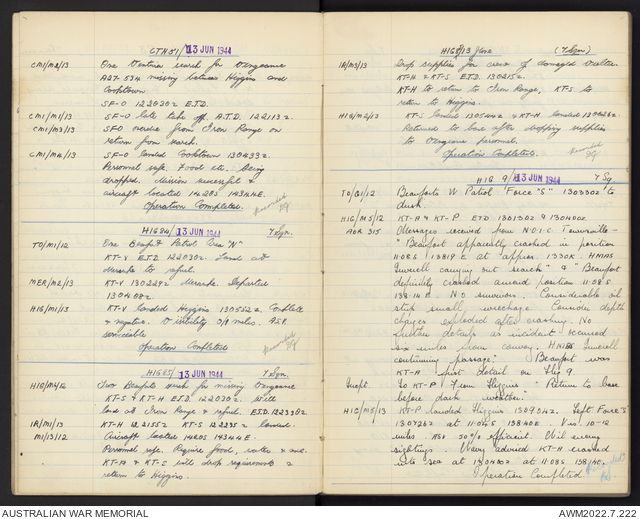 CTN51/ 13 JUN 1944
CM1/M2/13 One Ventura search for Vengeance
A27-534 missing between Higgins and
Cooktown
SF-O 122020Z E.T.D.
CM1/M1/13 SF-O late take off. A.T.D. 122113Z.
CM1/M3/13 SFO overdue from Iron Range on
return from search.
CM1/M4/13 SF-O landed Cooktown 130433Z.
Personnel safe. Food etc. being
dropped. Mission successful &
aircraft located 1428S 14344E.
Operation Completed.
HIG84/ 13 JUN 1944 7 Sqn.
TO/01/12 One Beaufort Patrol Area "N"
KT-V E.T.D. 122030Z. Land at
Merauke to refuel.
MER/M2/13 KT-V 130229Z Merauke. Departed
130408Z.
HIG/M1/13 KT-V landed Higgins 130552Z. Complete
& negative. Visibility miles. ASV.
serviceable
Operation Completed
HIG85/ 13 JUN 1944 7 Sqn.
HIG/M4/12 Two Beauforts search for missing Vengeance
KT-S & KT-H E.T.D. 122020Z. Will
land at Iron Range & refuel. E.T.D. 122330Z
IR/M1/13 KT-H 122155Z KT-S 122235Z landed.
M1/13/12 Aircraft located 1428S 14344E.
Personnel safe. Require food, water &
KT-H & KT-S will drop requirements &
return to Higgins.
HIG8/13 June (7 Sqn)
IR/M3/13 Drop supplies for crew of damaged Vultee.
KT-H & KT-S E.T.D. 130215Z.
KT-H to return to Iron Range, KT-S to
return to Higgins.
HIG/M2/13 KT-S landed 130544Z & KT-H landed
Returned to base after dropping supplies
to Vengeance personnel.
Operation Completed.
HIG 9/ 13 JUN 1944 7 Sq.
TO/Q1/12 Beauforts W Patrol Force "S" 130330Z to
dusk.
HIG/M5/12 KT-H & KT-P ETD 130130Z & 130400Z.
AOR 315 Messages received from N.O.I.C. Townsville-
"Beaufort apparently crashed in position
1108S 13819E at approx. 1330K. HMAS
Inverell carrying out search" & "Beaufort
definitely crashed around position 1108S
13814E. No survivors. Considerable oil
slick small wreckage. Consider depth
charges exploded after crashing. No
further details as incident occurred
six miles from convoy. HMAS Inverell
continuing passage." Beaufort was
KT-H first detail on Hig 9
Inept. To KT-P from Higgins "Return to base
before dark weather."
HIG/M5/13 KT-P landed Higgins 130904Z. Left Force S
130726Z at 1104S 13840E Vis. 10-12
miles ASV 50% efficient. Nil enemy
sightings. Navy advised KT-H crashed
into sea at 130400Z at 1108S 13814E.
Operation Completed.
AUSTRALIAN WAR MEMORIAL AWM2022.7.222